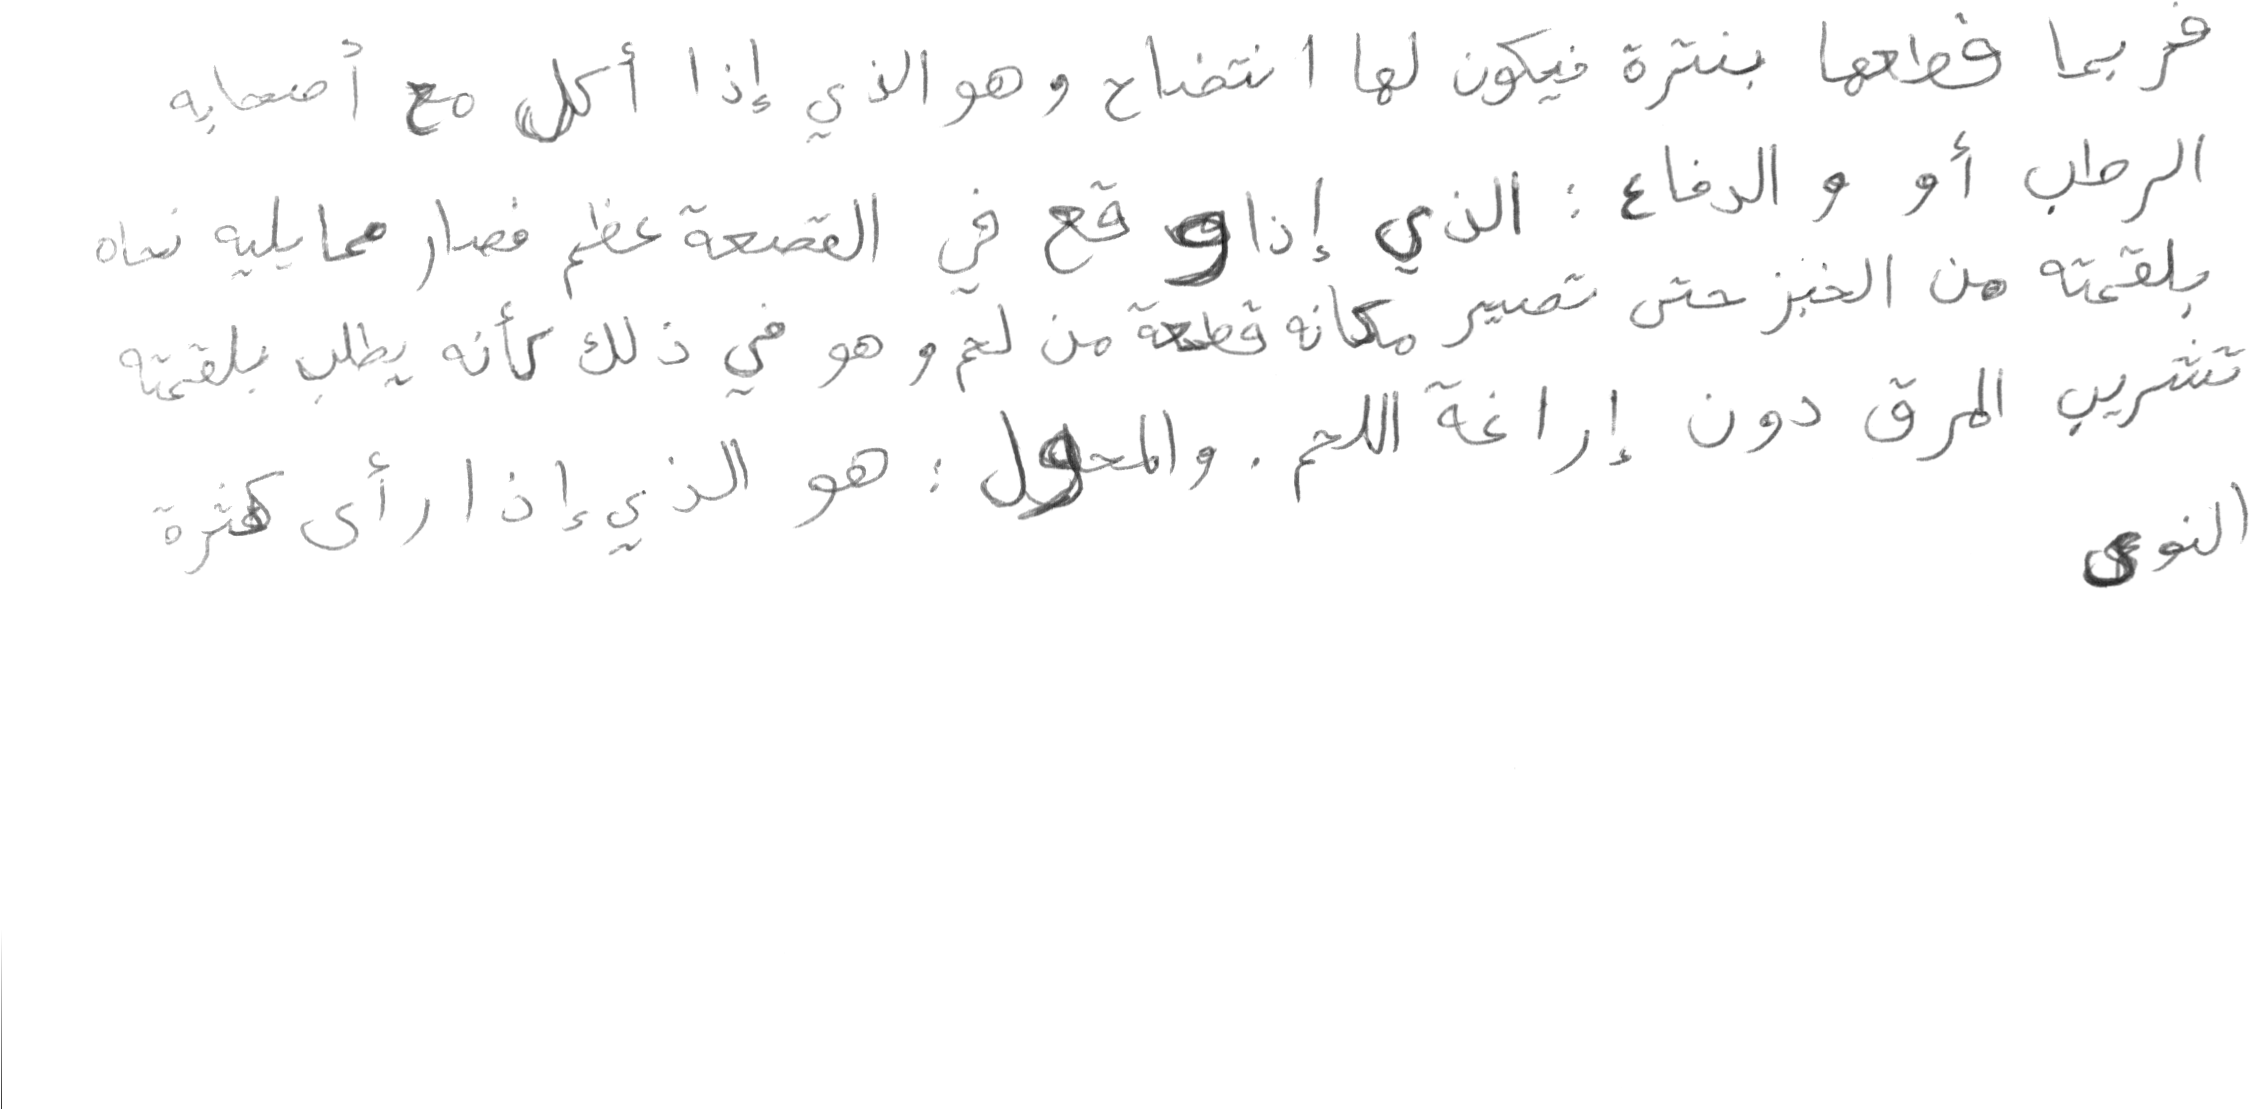 فربما قطعها بنترة فيكون لها انتضاح وهو الذي إذا أكل مع أصحابه
الرطب أو والدفاع : الذي إذا وقع في القصعة عظم فصار مما يليه نحاه
بلقمته من الخبز حتى تصير مكانه قطعة من لحم وهو في ذلك كأنه يطلب بلقمته
تشريب المرق دون إراغة اللحم . والمحول : هو الذي إذا رأى كثرة
النوى